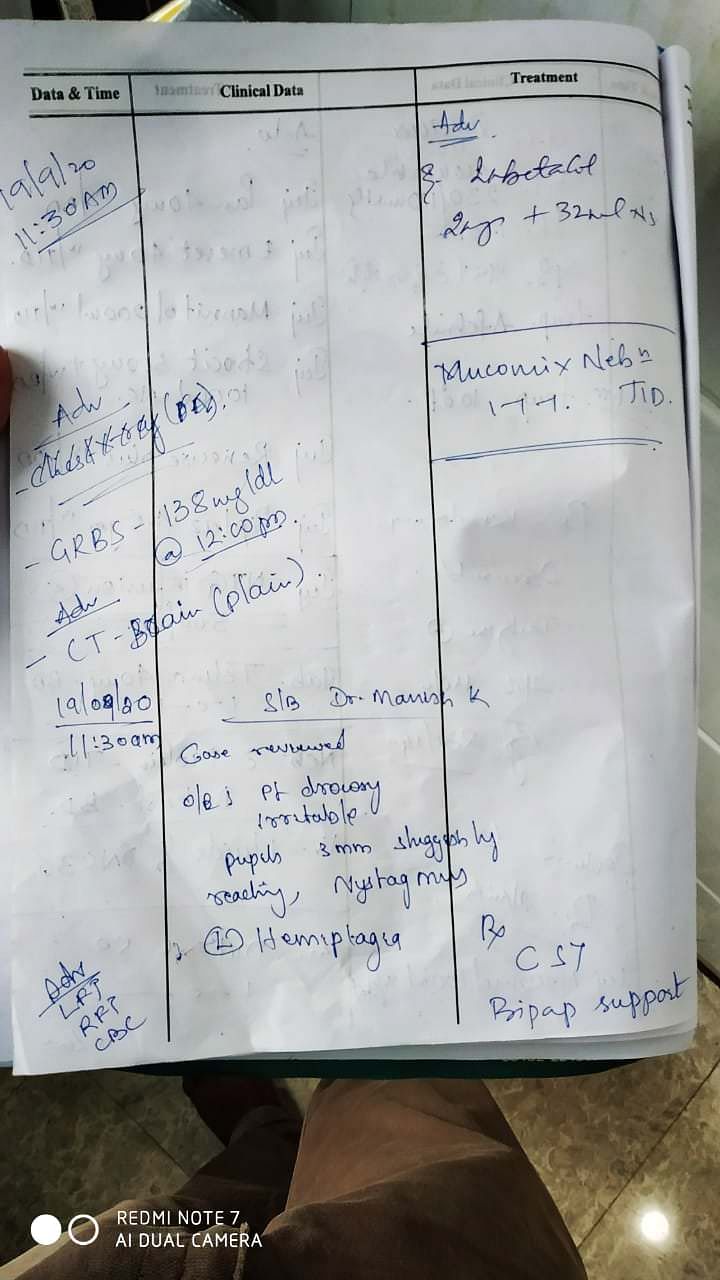 Data & Time Clinical Data Treatment
19/9/20
11:30AM
Adv
Labetalol
+ 32ml NS
Mucomix Nebn
1-1-1. TID.
Adv
- Chest X-ray
- GRBS - 138 mg/dl
@ 12:00pm.
Adv
- CT - Brain (plain)
19/09/20
11:30am
S/B Dr. Manish K
Case reviewed
Pt drowsy
irritable.
pupils 3mm sluggishly
reacting, Nystagmus
(L) Hemiplagia
Adv
LFT
RFT
CBC
Rx
CST
Bipap support
REDMI NOTE 7
AI DUAL CAMERA